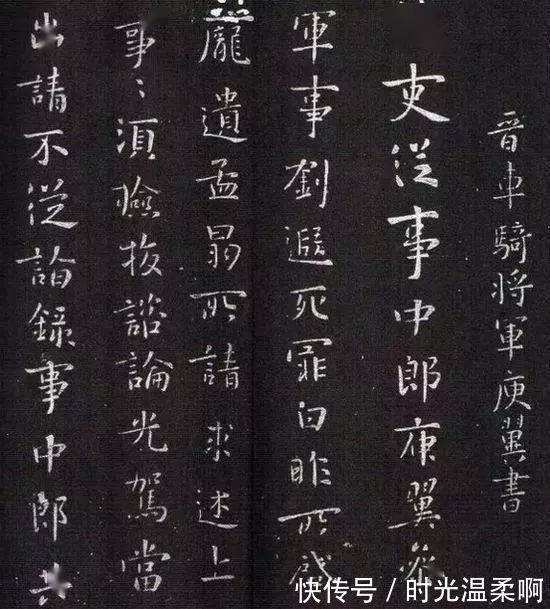 晉車騎將軍庾翼書
吏從事中郎庾翼參
軍事劉遐死罪白昨所
龐遺孟所請求述上
事〻須檢校諮論光駕當
出請不從諮錄事中郎共
快传号 / 时光温柔啊